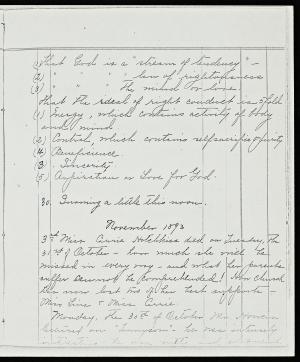 (1) that God is a "stream of tendency" -
(2) " " " " law of righteousness
(3) " " " The mind or love
That the ideal of right conduct is 5 fold
(1) Energy, which contains activity of body
and mind
(2) Control, which contains self sacrifice, purity
(4) Beneficience.
3. Sincerity
(5) Aspiration or Love for God.
30. Snowing a little this noon.
November 1893
3rd Miss Carrie Hotchkiss died on Tuesday, the
31st of October - how much she will be
missed in every way - and what her parents
suffer cannot be comprehended! Our church
has now lost two of her best supports -
Miss & Miss Carrie.
Monday, the 30th of October Mr.
on "Tennyson" he was